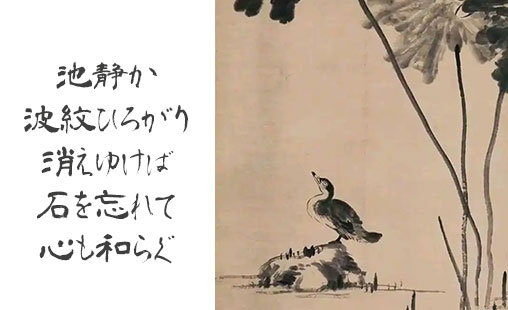 池静か
波紋ひろがり
消えゆけば
石を忘れて
心も和らぐ